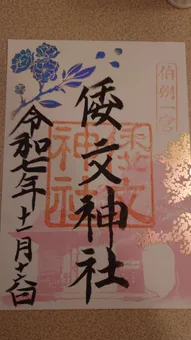 倭文神社
倭文
神社
令和七年十一月十六日